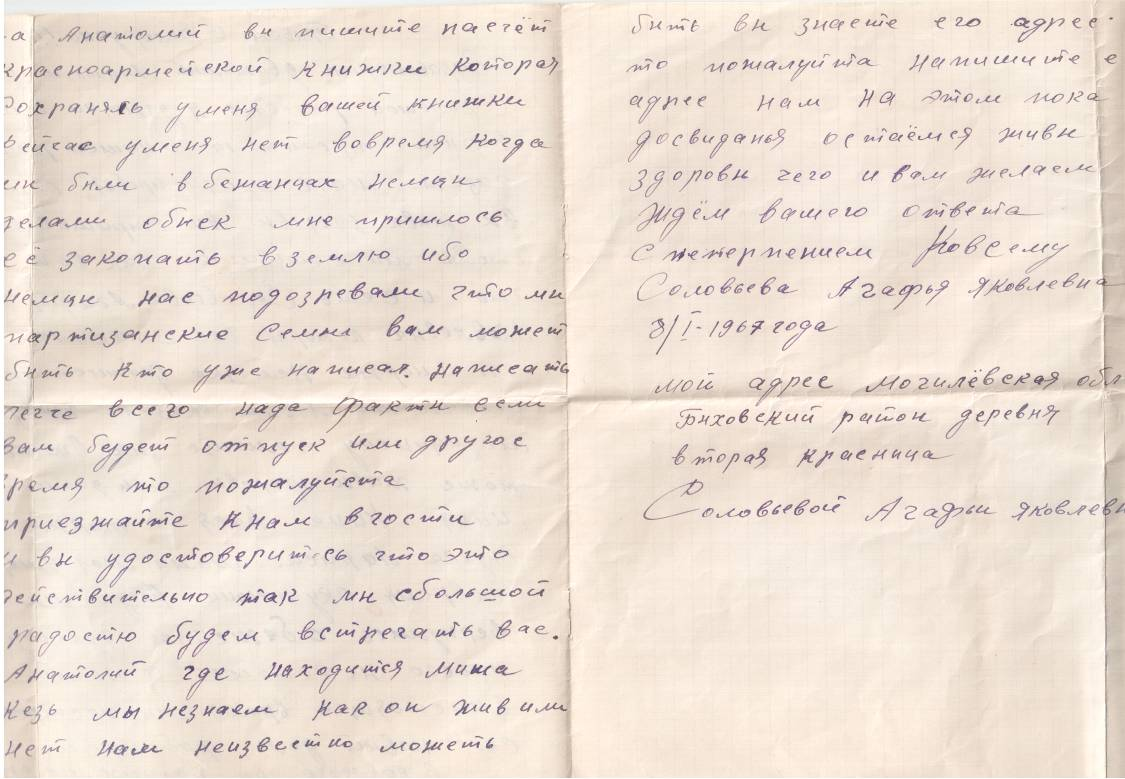 -а Анатолий вы пишите насчёт
красноармейской книжки которая
сохранялсь уменя вашей книжки
сейчас уменя нет вовремя когда
мы были в бежанцах немцы
делали обыск мне пришлось
её закопать вземлю ибо
немцы нас подозревали что мы
партизанские семьи вам может
быть кто уже написал. написать
легче всего нада факты если
вам будет отпуск или другое
время то пожалуйста
приезжайте кнам вгости
и вы удостоверитсь что это
действительно так мы сбольшой
радостю будем встречать вас.
Анатолий где находится миша
Кезь мы незнаем как он жив или
нет нам неизвестно можеть
быть вы знаете его адрес.
то пожалуйта напишите е
адрес нам на этом пока
досвиданья остаёмся живы
здоровы чего и вам желаем
ждём вашего ответа
с нетерпением Ковсему
Соловьева Агафья Яковлевна
8/I-1967 года
мой адрес могилёвская обл
Быховский район деревня
вторая красница
Соловьевой Агафьи Яковлевн